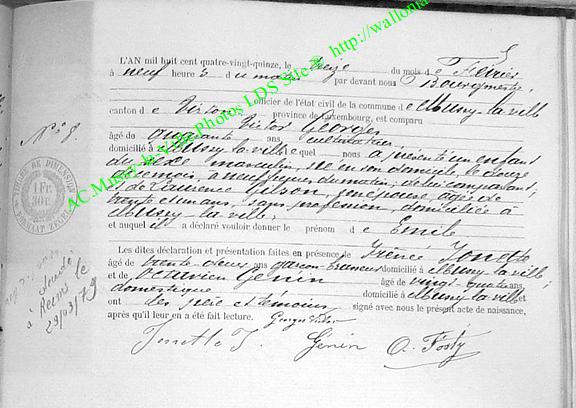 L'AN mil huit cent quatre-vingt-quinze, le treize du mois de Février
à neuf heures du matin par devant nous Bourgmestre,
officier de l'état civil de la commune de Mussy-la-ville
canton de Virton, province de Luxembourg, est comparu
Victor Georges
âgé de quarante ans cultivateur
domicilié à Mussy-la-ville quel nous a présenté un enfant
du sexe masculin, né en son domicile, le douze
de ce mois, à neuf heures du matin, de lui comparant,
et de Laurence Pilson, son épouse, âgée de
trente et un ans, sans profession, domiciliée à
Mussy-la-ville,
et auquel il a déclaré vouloir donner le prénom de Emile
Les dites déclaration et présentation faites en présence de Irénée Jonette
âgé de trente deux ans garçon brasseur domicilié à Mussy-la-ville
et de Octavien Génin âgé de vingt-quatre ans
domestique domicilié à Mussy-la-ville et
ont les père et témoins signé avec nous le présent acte de naissance,
après qu'il leur en a été fait lecture. Georges Victor
Jonette I. Génin O. Fosty
N° 8
DE DIMENSION
1 Fr.
30 c.
FORMAAT ZEGEL
à Reims le
AC Mussy-la-Ville Photos LDS Site http://wallonia